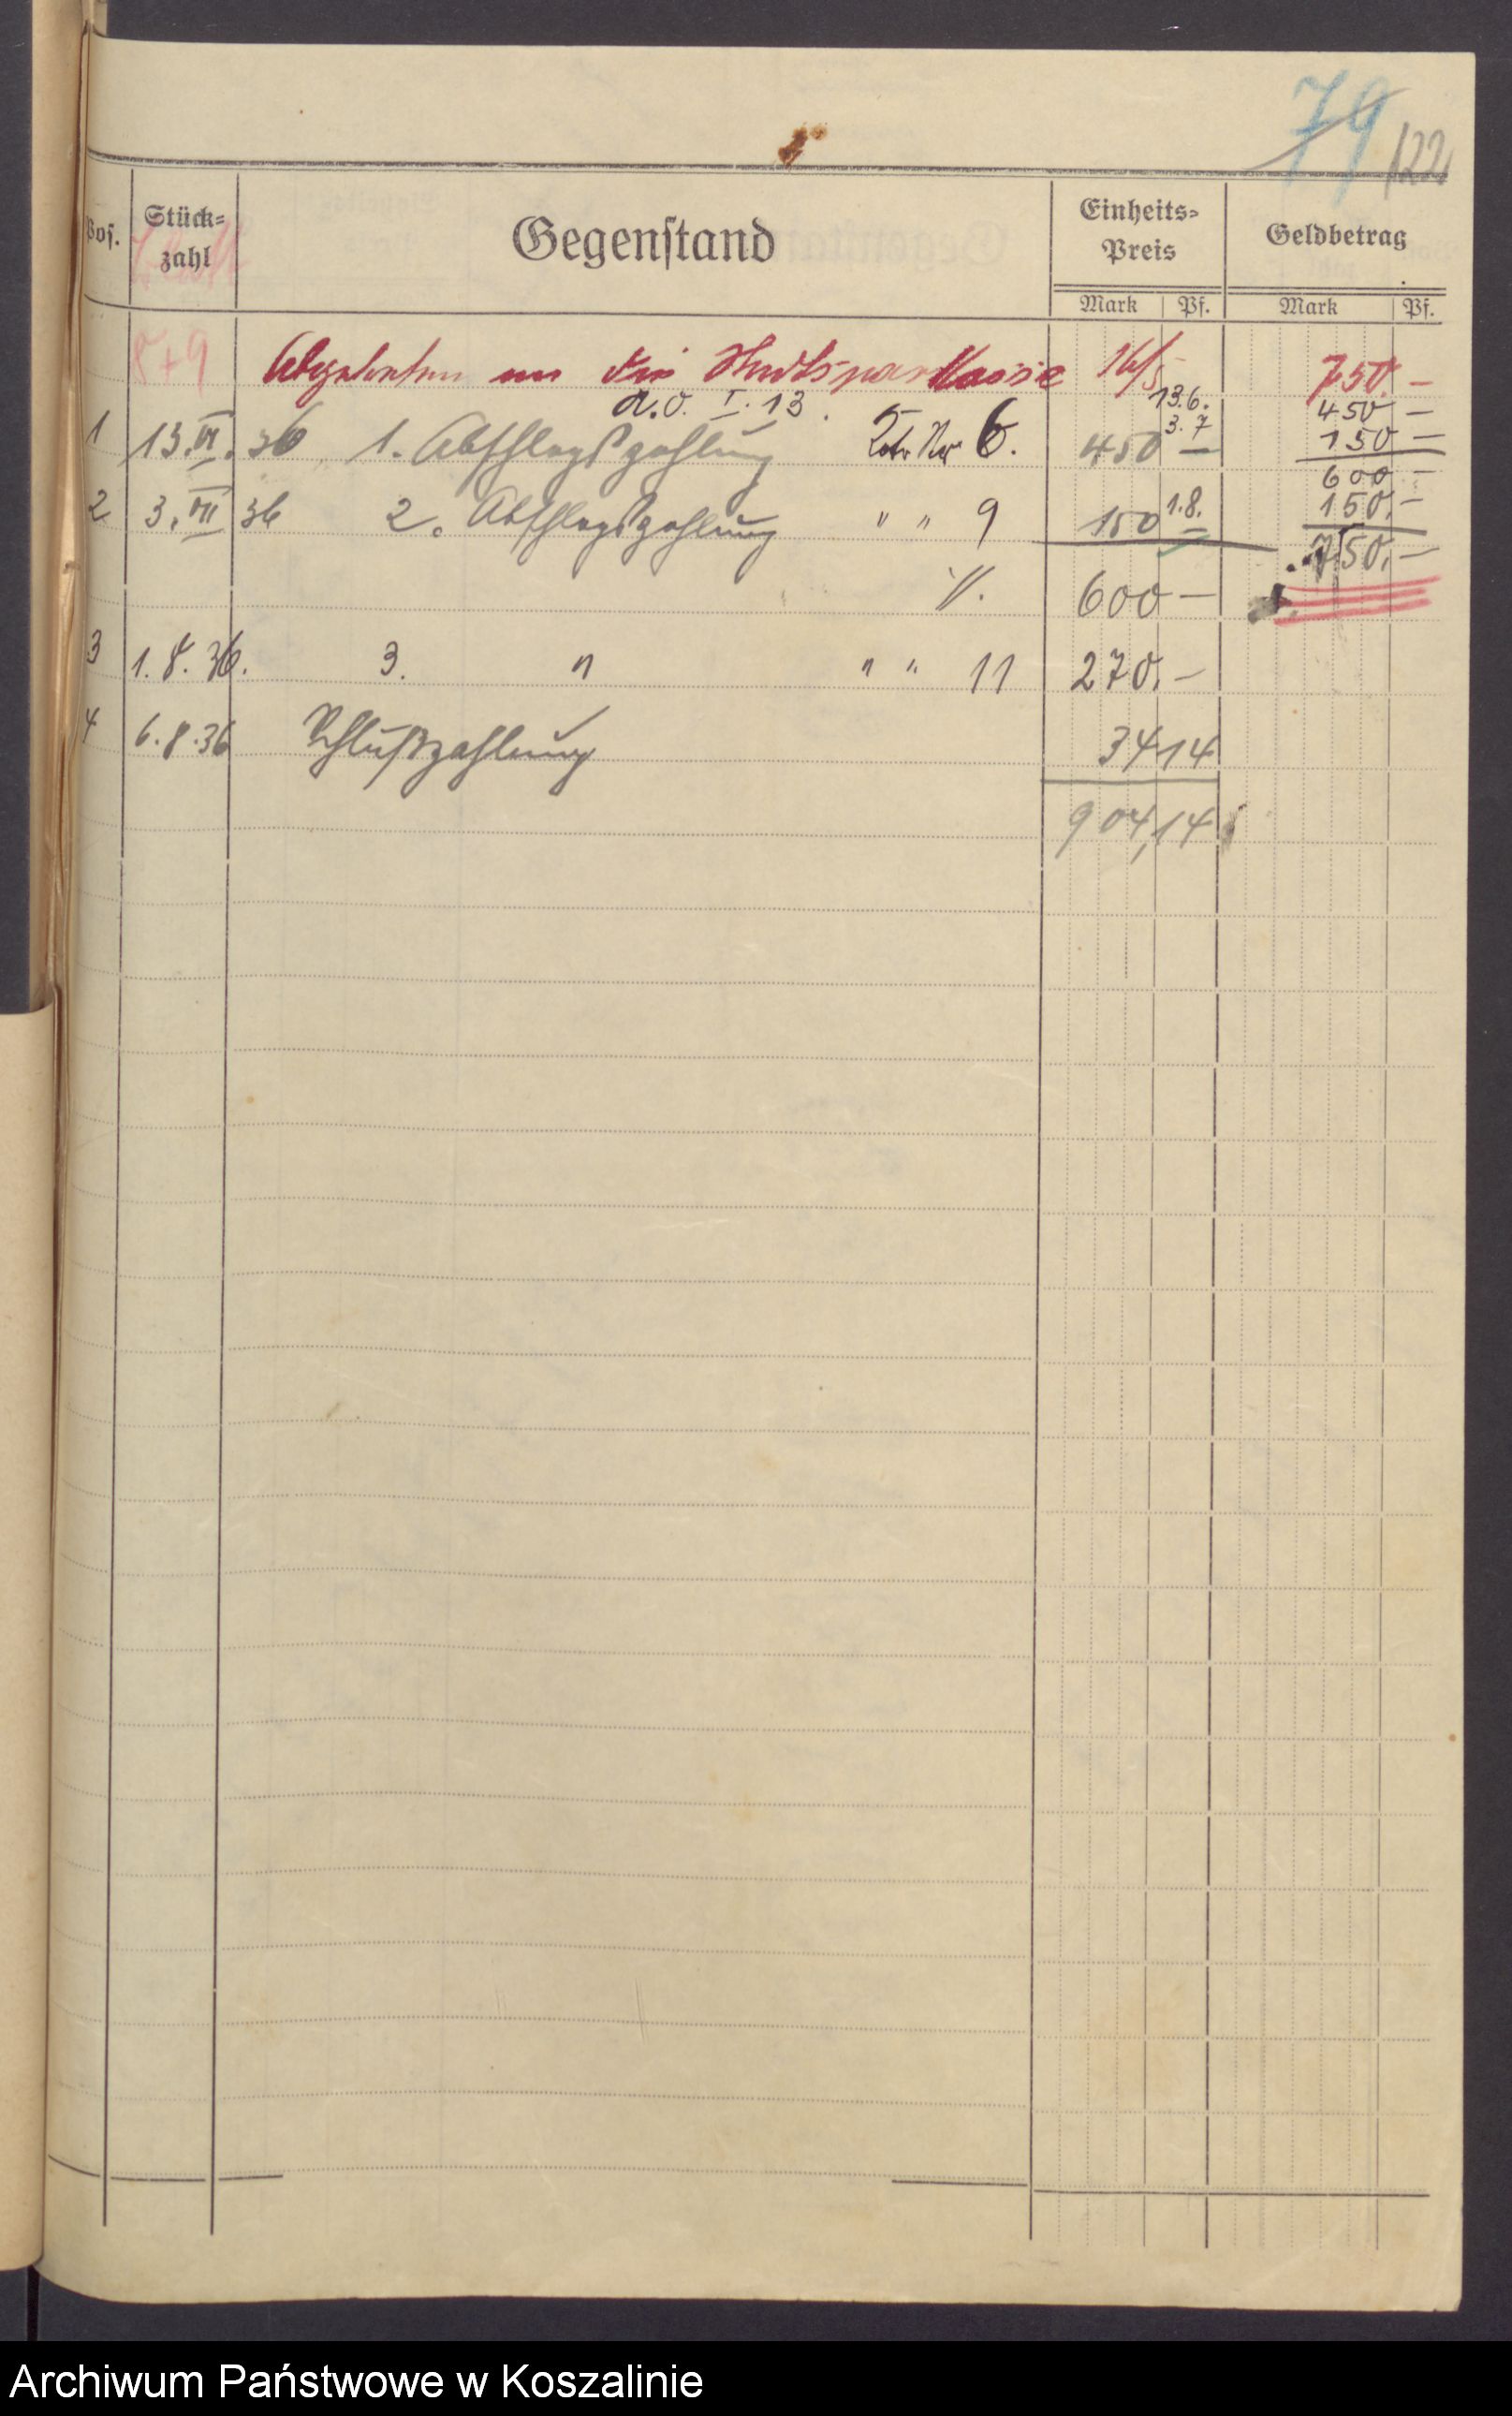 79 122
Pos. Stück-zahl Gegenstand Einheits-Preis Geldbetrag
Mark Pf. Mark Pf.
8+9 Abgetreten an die Stadtsparkasse 16/5 750.—
A.O. I. 13. 13.6. 450 —
3.7 150 —
1 13.VI.36 1. Abschlagszahlung No 6. 450 —
600 —
2 3.VII 36 2. Abschlagszahlung " " 9 150 — 1.8. 150.—
750.—
600 —
3 1.8.36. 3. " " " 11 270.—
4 6.8.36 Schlußzahlung 34 14
904,14
Archiwum Państwowe w Koszalinie